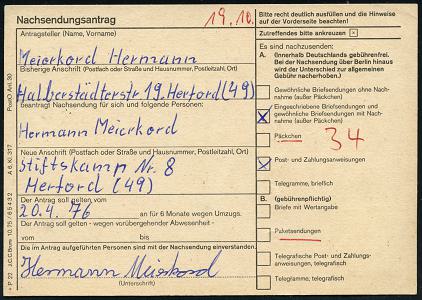 Nachsendungsantrag
19.10.
Bitte recht deutlich ausfüllen und die Hinweise
auf der Vorderseite beachten!
Zutreffendes bitte ankreuzen x
Antragsteller (Name, Vorname)
Meierkord Hermann
Bisherige Anschrift (Postfach oder Straße und Hausnummer, Postleitzahl, Ort)
Halberstädterstr 19 Herford (49)
beantragt Nachsendung für sich und folgende Personen:
Hermann Meierkord
Neue Anschrift (Postfach oder Straße und Hausnummer, Postleitzahl, Ort)
Stiftskamp Nr. 8
Herford (49)
Der Antrag soll gelten vom
20.4.76 an für 6 Monate wegen Umzugs.
Der Antrag soll gelten - wegen vorübergehender Abwesenheit -
vom bis
Die im Antrag aufgeführten Personen sind mit der Nachsendung einverstanden.
Hermann Meierkord
(Unterschrift)
Es sind nachzusenden:
A. (Innerhalb Deutschlands gebührenfrei.
Bei der Nachsendung über Berlin hinaus
wird der Unterschied zur allgemeinen
Gebühr nacherhoben.)
Gewöhnliche Briefsendungen ohne Nachnahme
(außer Päckchen)
X Eingeschriebene Briefsendungen und
gewöhnliche Briefsendungen mit Nach-
nahme (außer Päckchen)
Päckchen
34
X Post- und Zahlungsanweisungen
Telegramme, brieflich
B. (gebührenpflichtig)
Briefe mit Wertangabe
Paketsendungen
Telegrafische Post- und Zahlungs-
anweisungen, telegrafisch
Telegramme, telegrafisch